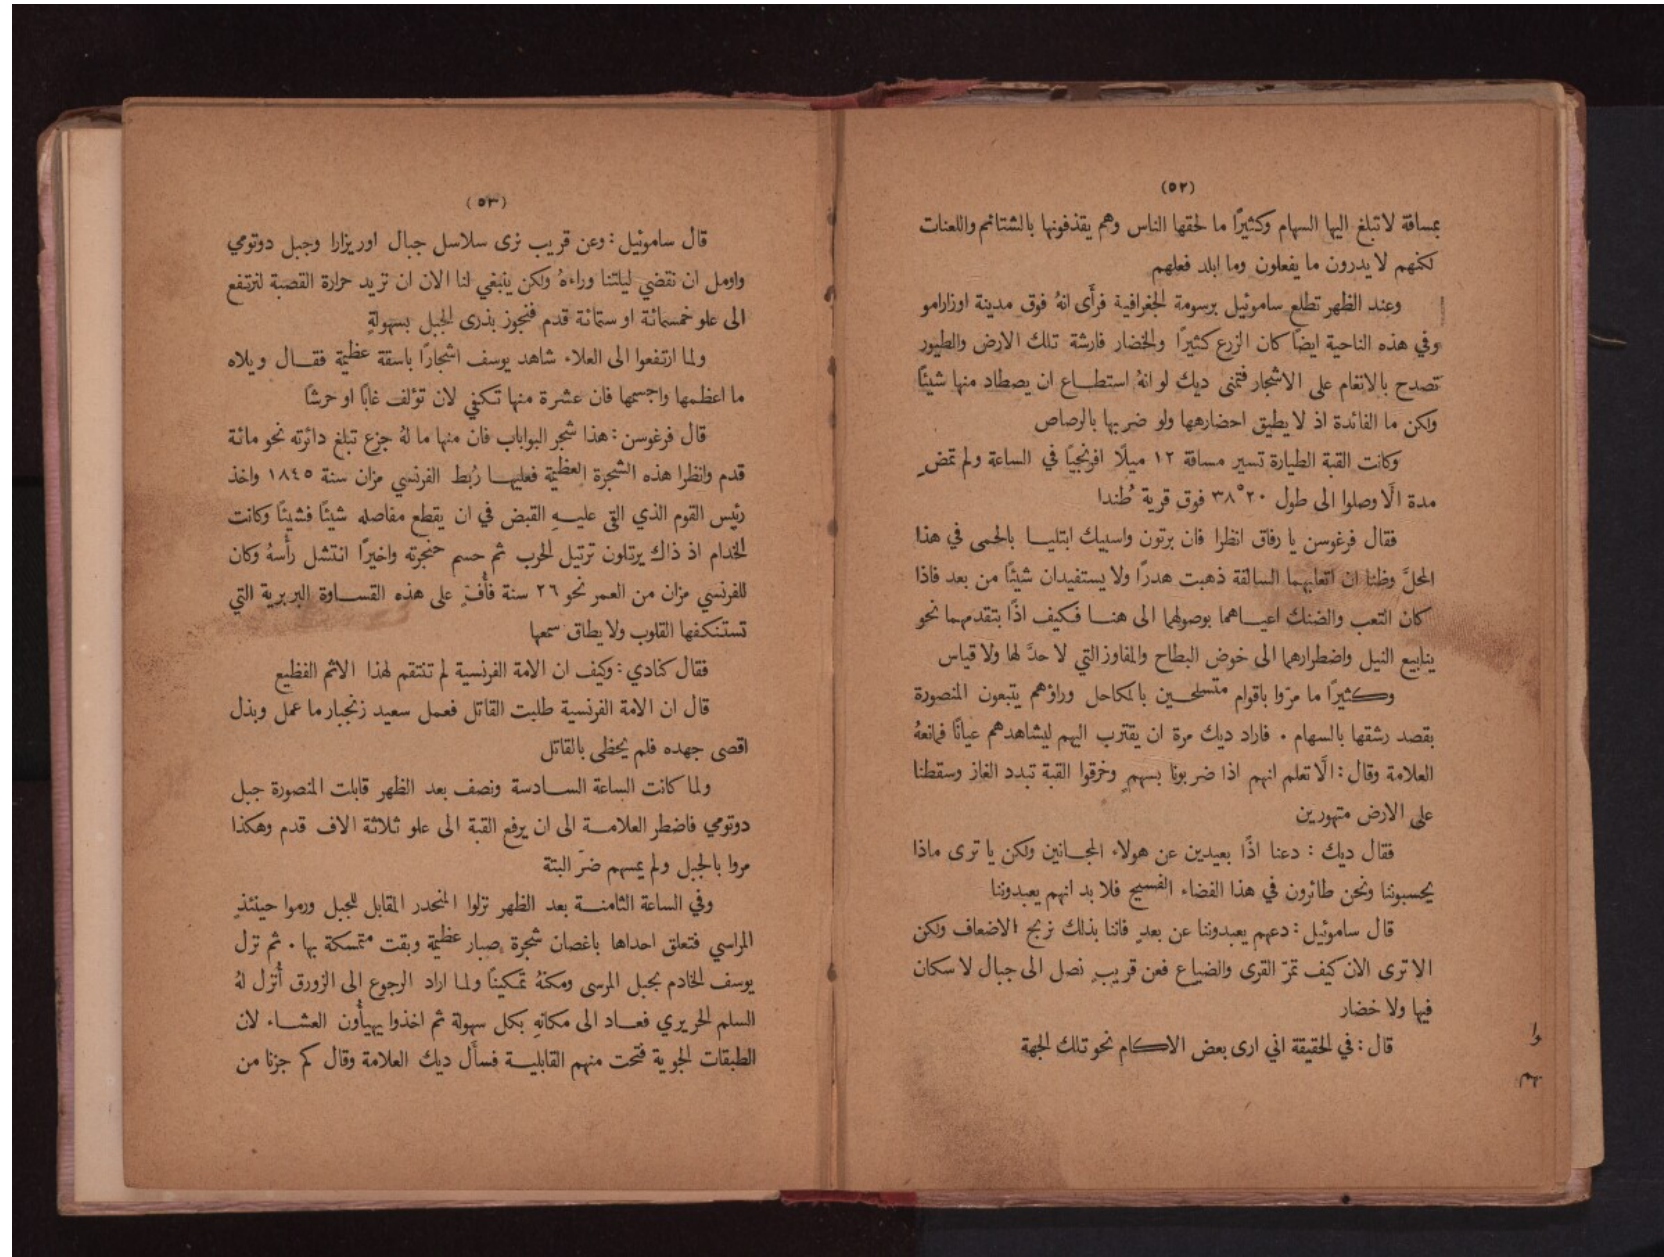 (٥٢)
بمسافة لا تبلغ اليها السهام وكثيرًا ما لحقها الناس وهم يقذفونها بالشتائم واللعنات
لكنهم لا يدرون ما يفعلون وما ابلد فعلهم
وعند الظهر تطلع ساموئيل برسومة الجغرافية فرأى انهُ فوق مدينة اوزارامو
وفي هذه الناحية ايضًا كان الزرع كثيرًا والخضار فارشة تلك الارض والطيور
تصدح بالانغام على الاشجار فتمنى ديك لو انهُ استطاع ان يصطاد منها شيئًا
ولكن ما الفائدة اذ لا يطيق احضارهها ولو ضربها بالرصاص
وكانت القبة الطيارة تسير مسافة ١٢ ميلًا افرنجيًا في الساعة ولم تمضِ
مدة الَّا وصلوا الى طول ٢٠ ْ٣٨ فوق قرية طُندا
فقال فرغوسن يا رفاق انظرا فان برتون واسبيك ابتليا بالحمى في هذا
المحلّ وظنا ان اتعابهما السالفة ذهبت هدرًا ولا يستفيدان شيئًا من بعد فاذا
كان التعب والضنك اعياهما بوصولهما الى هنا فكيف اذًا بتقدمهما نحو
ينابيع النيل واضطرارهما الى خوض البطاح والمفاوز التي لا حدَّ لها ولا قياس
وكثيرًا ما مرّوا باقوام متسلحين بالمكاحل وراؤهم يتبعون المنصورة
بقصد رشقها بالسهام . فاراد ديك مرة ان يقترب اليهم ليشاهدهم عيانًا فمانعهُ
العلامة وقال : الَّا تعلم انهم اذا ضربونا بسهمٍ وخرقوا القبة تبدد الغاز وسقطنا
على الارض متهورين
فقال ديك : دعنا اذًا بعيدين عن هولاء المجانين ولكن يا ترى ماذا
يحسبوننا ونحن طائرون في هذا الفضاء الفسيح فلا بد انهم يعبدوننا
قال ساموئيل : دعهم يعبدوننا عن بعدٍ فاننا بذلك نربح الاضعاف ولكن
الا ترى الان كيف تمرّ القرى والضياع فعن قريبٍ نصل الى جبال لا سكان
فيها ولا خضار
قال : في الحقيقة اني ارى بعض الاكام نحو تلك الجهة
(٥٣)
قال ساموئيل : وعن قريب نرى سلاسل جبال اوريزارا وجبل دوتومي
واومل ان نقضي ليلتنا وراءهُ ولكن ينبغي لنا الان ان تريد حرارة القصبة لنرتفع
الى علو خمسمائة او ستمائة قدم فنجوز بذرى الجبل بسهولةٍ
ولما ارتفعوا الى العلاء شاهد يوسف اشجارًا باسقة عظيمة فقال ويلاه
ما اعظمها واجسمها فان عشرة منها تكفي لان تؤلف غابًا او حرشًا
قال فرغوسن : هذا شجر البواباب فان منها ما لهُ جزع تبلغ دائرته نحو مائة
قدم وانظرا هذه الشجرة العظيمة فعليها رُبط الفرنسي مزان سنة ١٨٤٥ واخذ
رئيس القوم الذي القي عليهِ القبض في ان يقطع مفاصله شيئًا فشيئًا وكانت
الخدام اذ ذاك يرتلون ترتيل الحرب ثم حسم حنجرته واخيرًا انتشل رأسهُ وكان
للفرنسي مزان من العمر نحو ٢٦ سنة فأُفٍّ على هذه القساوة البربرية التي
تستنكفها القلوب ولا يطاق سمعها
فقال كنادي : وكيف ان الامة الفرنسية لم تنتقم لهذا الاثم الفظيع
قال ان الامة الفرنسية طلبت القاتل فعمل سعيد زنجبار ما عمل وبذل
اقصى جهده فلم يحظى بالقاتل
ولما كانت الساعة السادسة ونصف بعد الظهر قابلت المنصورة جبل
دوتومي فاضطر العلامة الى ان يرفع القبة الى علو ثلاثة الاف قدم وهكذا
مروا بالجبل ولم يمسهم ضرّ البتة
وفي الساعة الثامنة بعد الظهر نزلوا المنحدر المقابل للجبل ورموا حينئذٍ
المراسي فتعلق احداها باغصان شجرة صبار عظيمة وبقت متمسكة بها . ثم نزل
يوسف الخادم بحبل المرسى ومكنهُ تمكينًا ولما اراد الرجوع الى الزورق أُنزل لهُ
السلم الحريري فعاد الى مكانهِ بكل سهولة ثم اخذوا يهيأُون العشاء لان
الطبقات الجوية فتحت منهم القابلية فسأل ديك العلامة وقال كم جزنا من